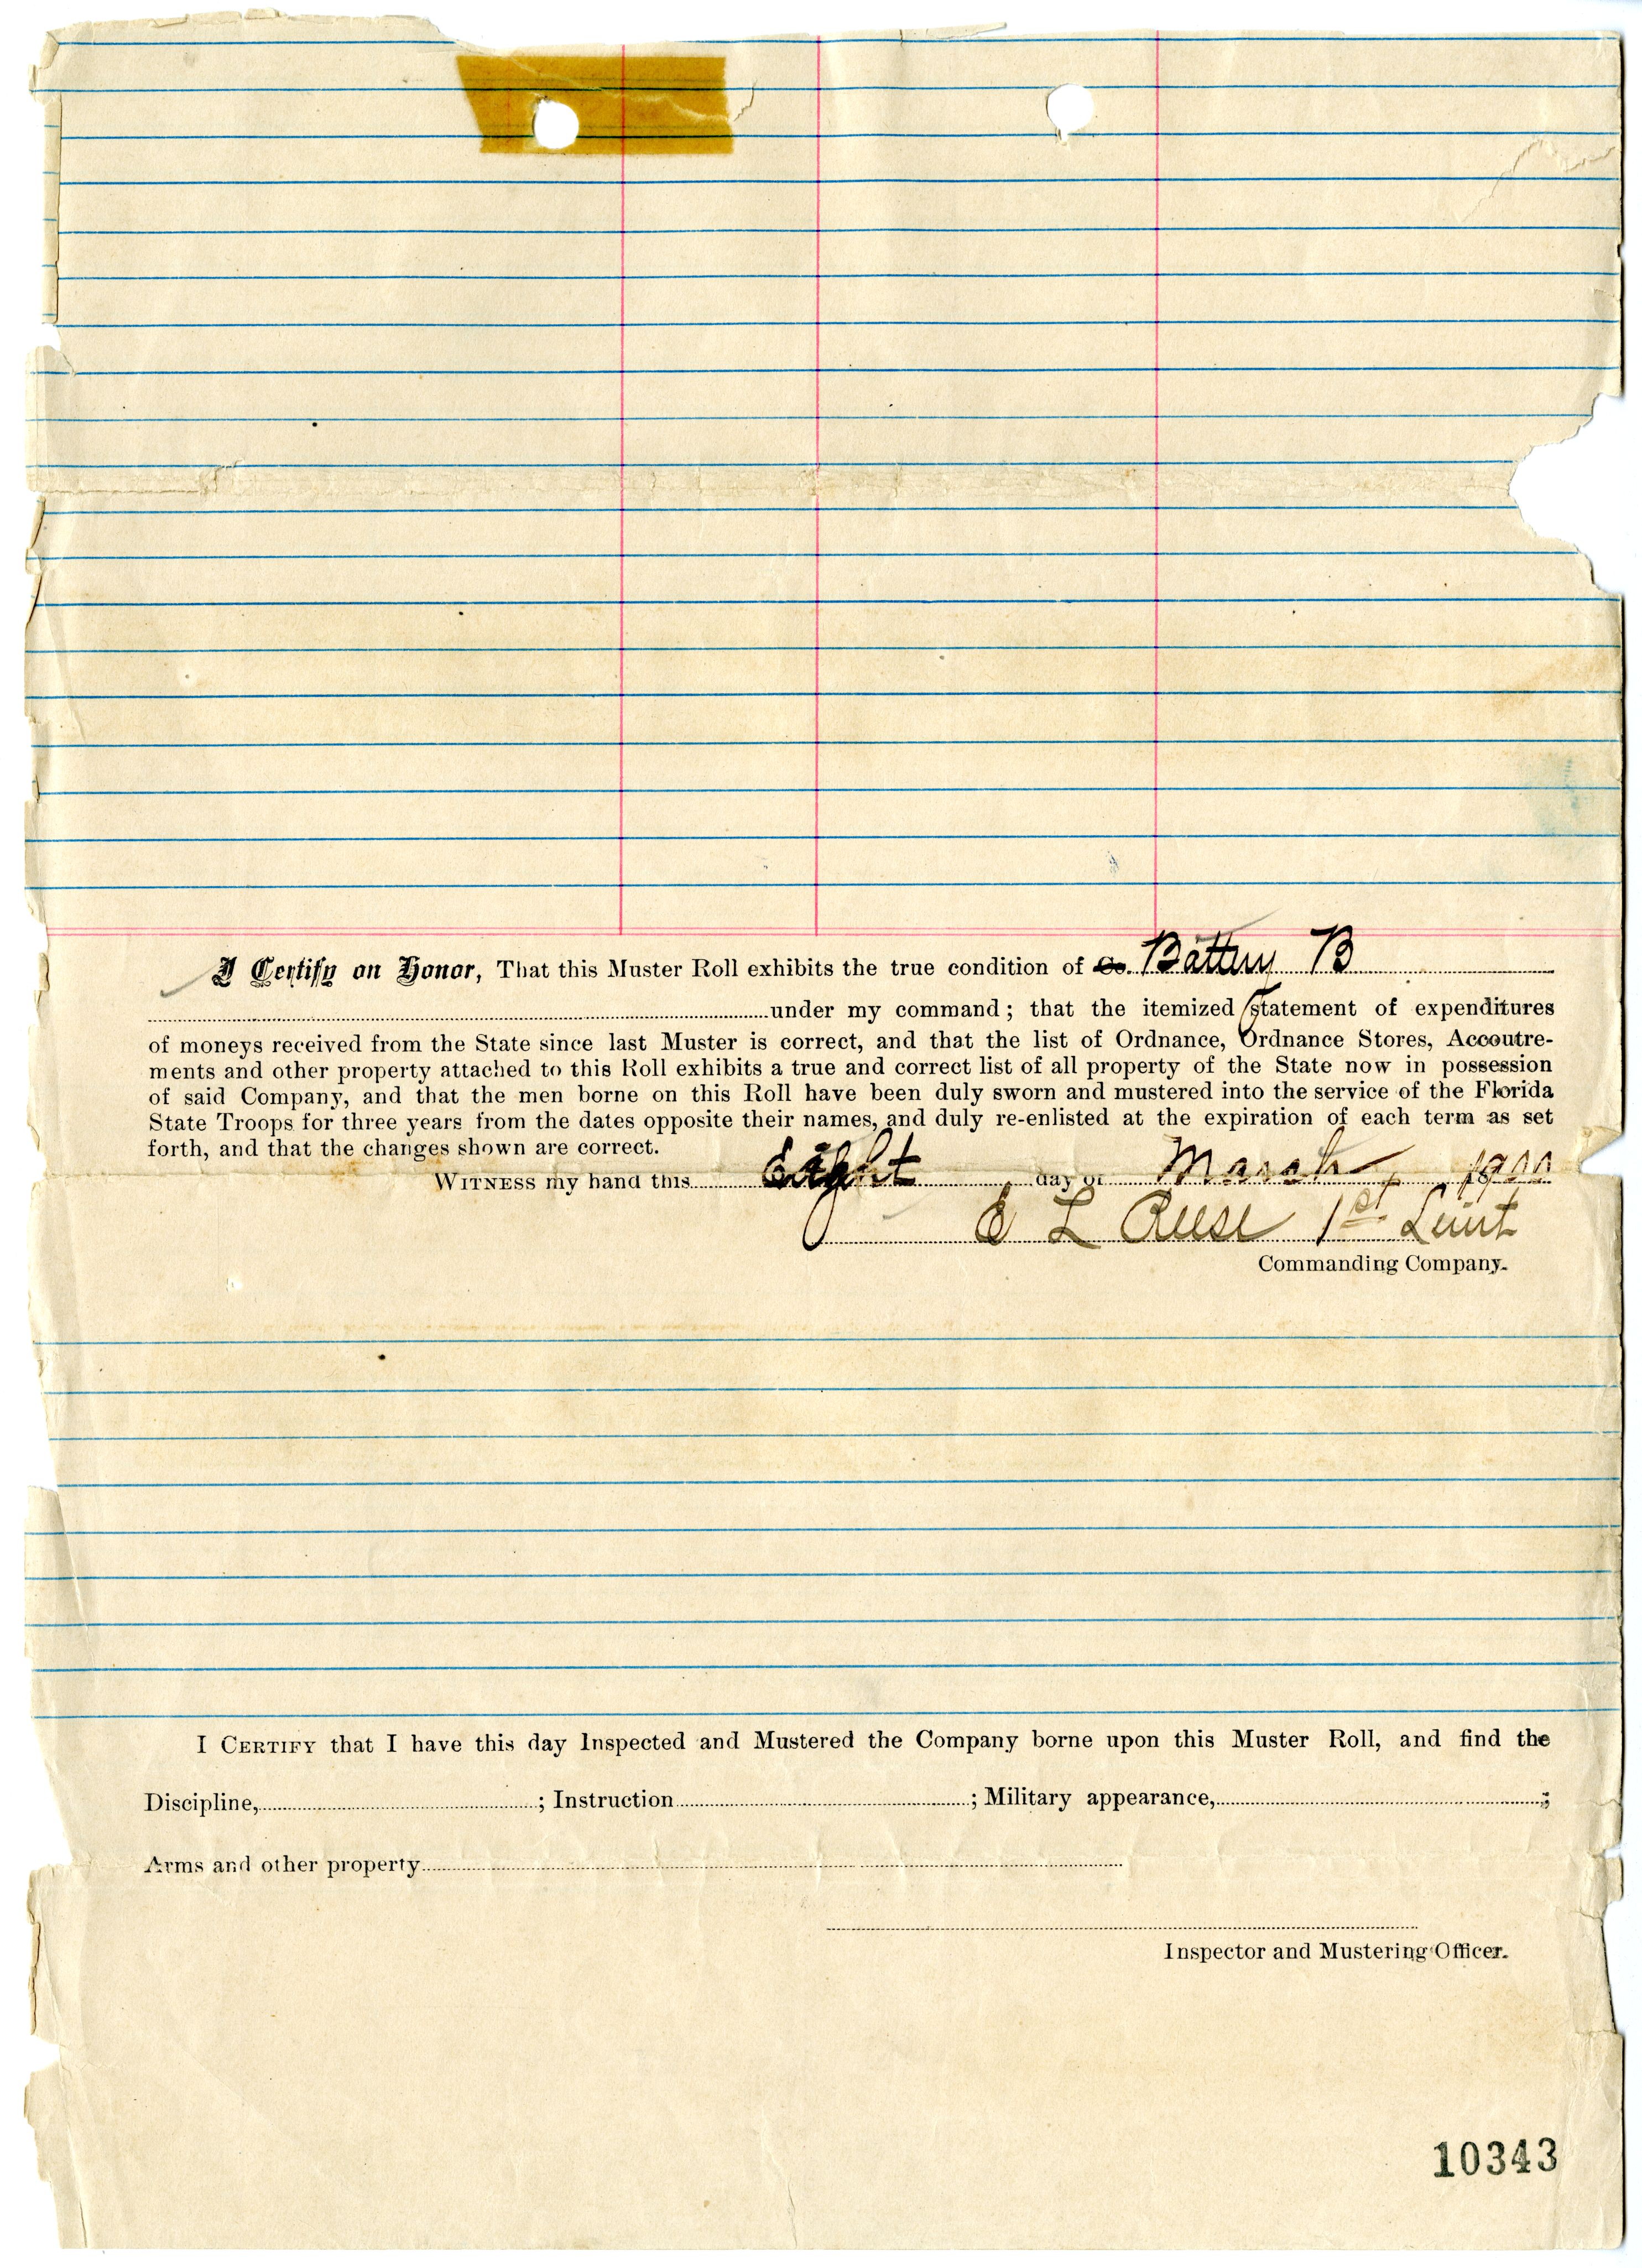 I Certify on Honor, That this Muster Roll exhibits the true condition of Co. Battery B
under my command; that the itemized statement of expenditures
of moneys received from the State since last Muster is correct, and that the list of Ordnance, Ordnance Stores, Accoutre-
ments and other property attached to this Roll exhibits a true and correct list of all property of the State now in possession
of said Company, and that the men borne on this Roll have been duly sworn and mustered into the service of the Florida
State Troops for three years from the dates opposite their names, and duly re-enlisted at the expiration of each term as set
forth, and that the changes shown are correct.
WITNESS my hand this Eight day of March 1900
E L Reese 1st Lieut
Commanding Company.
I CERTIFY that I have this day Inspected and Mustered the Company borne upon this Muster Roll, and find the
Discipline, ; Instruction ; Military appearance, ;
Arms and other property
Inspector and Mustering Officer.
10343